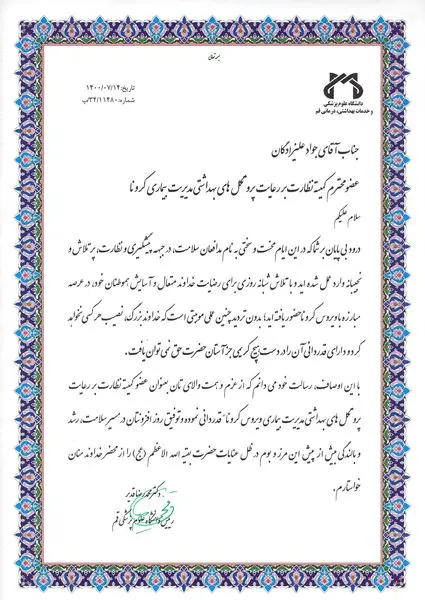 بسمه تعالی
دانشگاه علوم پزشکی
و خدمات بهداشتی، درمانی قم
تاریخ: ۱۴۰۰/۰۷/۱۴
شماره: ۳۴/۱۱۴۸۰/پ
جناب آقای جواد علیزادگان
عضو محترم کمیته نظارت بر رعایت پروتکل های بهداشتی مدیریت بیماری کرونا
سلام علیکم
درود بی پایان بر شما که در این ایام محنت و سختی به نام مدافعان سلامت، در جبهه پیشگیری و نظارت، پرتلاش و
نجیبانه وارد عمل شده اید و با تلاش شبانه روزی برای رضایت خداوند متعال و آسایش هموطنان خود، در عرصه
مبارزه با ویروس کرونا حضور یافته اید؛ بدون تردید چنین عملی موهبتی است که خداوند بزرگ، نصیب هر کسی نخواهد
کرد و دارای قدردانی آن را در دست هیچ کریمی جز آستان حضرت حق نمی توان یافت.
با این اوصاف، رسالت خود می دانم که از عزم و همت والای تان بعنوان عضو کمیته نظارت بر رعایت
پروتکل های بهداشتی مدیریت بیماری ویروس کرونا قدردانی نموده و توفیق روز افزونتان در مسیر سلامت، رشد
و بالندگی بیش از پیش این مرز و بوم در ظل عنایات حضرت بقیه الله الاعظم (عج) را از محضر خداوند منان
خواستارم.
دکتر محمدرضا قدیر
رییس دانشگاه علوم پزشکی قم